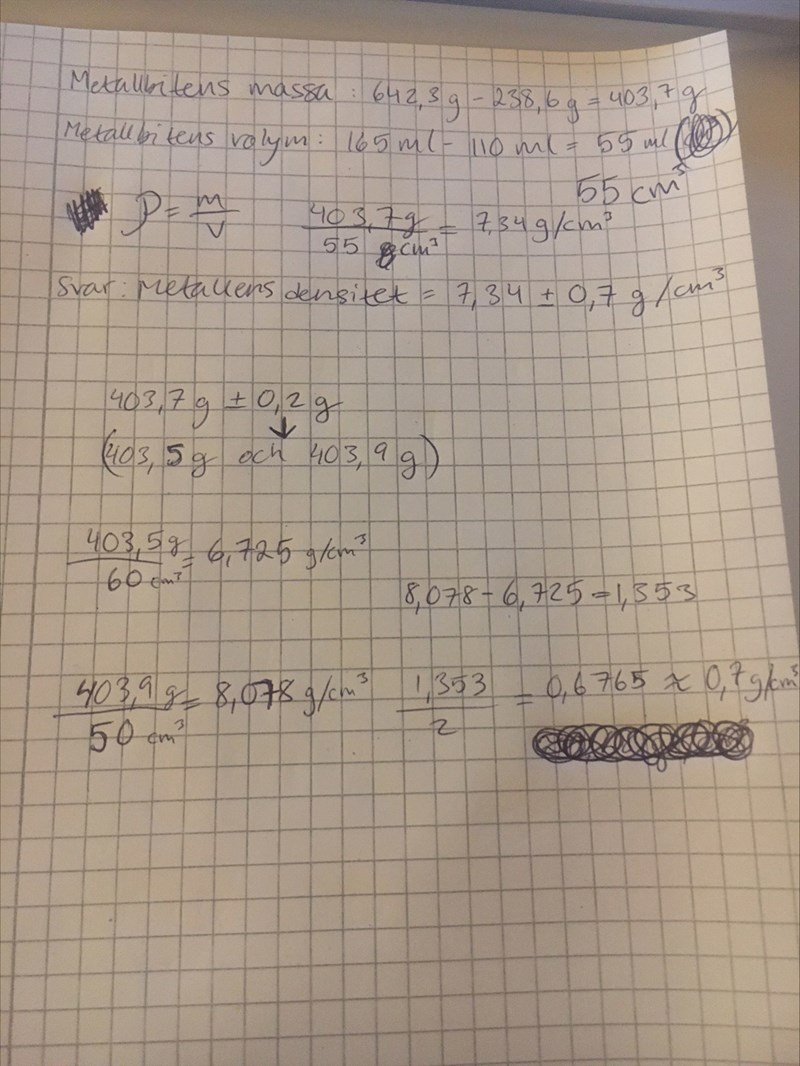 Metallbitens massa: 642,3g - 238,6g = 403,7g
Metallbitens volym: 165 ml - 110 ml = 55 ml
55 cm³
ρ = m/v 403,7g/55 cm³ = 7,34 g/cm³
Svar: Metallens densitet = 7,34 ± 0,7 g/cm³
403,7g ± 0,2g
↓
(403,5g och 403,9g)
403,5g/60cm³ = 6,725 g/cm³
8,078 - 6,725 = 1,353
403,9g/50 cm³ = 8,078 g/cm³ 1,353/2 = 0,6765 ≈ 0,7g/cm³